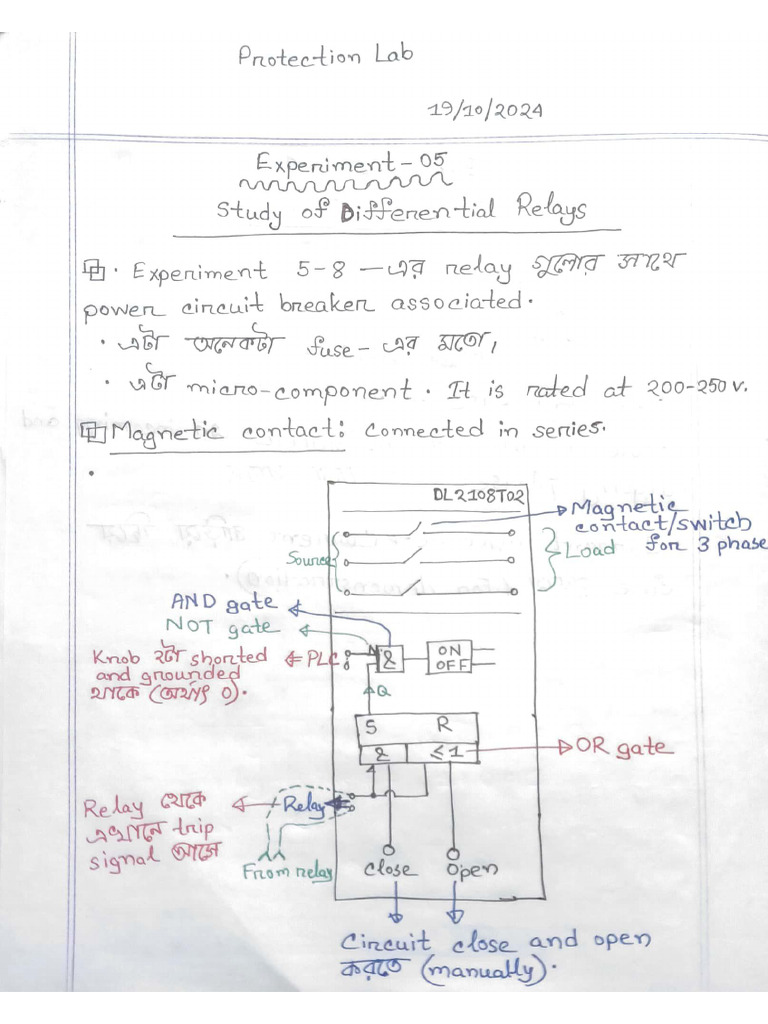 Protection Lab
19/10/2024
Experiment - 05
Study of Differential Relays
Experiment 5-8 — এর relay গুলোর সাথে
power circuit breaker associated.
• এটা অনেকটা fuse - এর মতো,
• এটা micro-component. It is rated at 200-250 v.
Magnetic contact: Connected in series.
DL2108T02
Magnetic
contact/switch
for 3 phase
Source
Load
AND gate
NOT gate
Knob ২টা shorted
and grounded
থাকে (অর্থাৎ 0).
PLC
&
ON
OFF
Q
S R
& ≤1
OR gate
Relay থেকে
এখানে trip
signal আসে
Relay
From relay
Close
Open
Circuit close and open
করতে (manually).